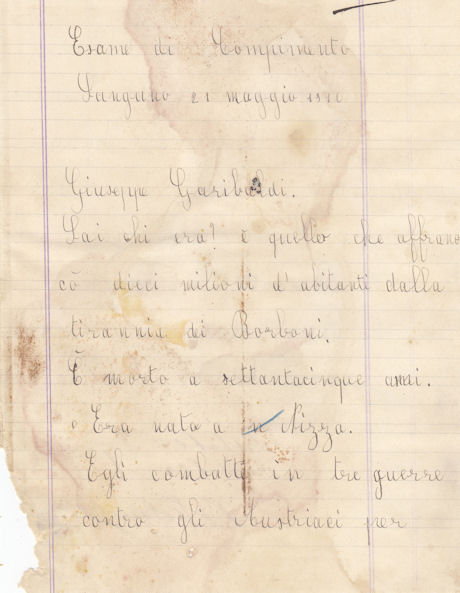 Esame di Compimento
Sangano 21 maggio 1910
Giuseppe Garibaldi.
Sai chi era? è quello che affran
cò dieci milioni d'abitanti dalla
tirannia di Borboni.
È morto a settantacinque anni.
Era nato a in Nizza.
Egli combattè in tre guerre
contro gli Austriaci per